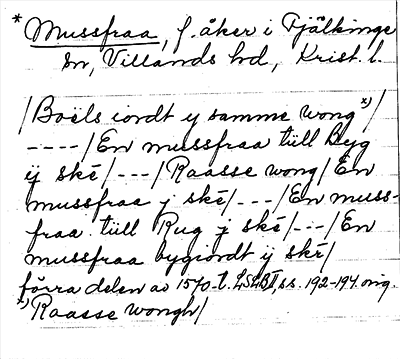 * Mussfraa, f. åker i Fjälkinge
sn, Villands hd, Krist. l.
/Boëls iordt y samme wong *)/
----/En mussfraa tüll byg
ÿ ské/---/Raasse wong/En
mussfraa j ské/---/En muss-
fraa tüll Rug j ské/---/En
mussfraa bygiordt ÿ ské/
förra delen av 1570-t. LSLB II, ss. 192-194 orig.
*) Raasse wongh/